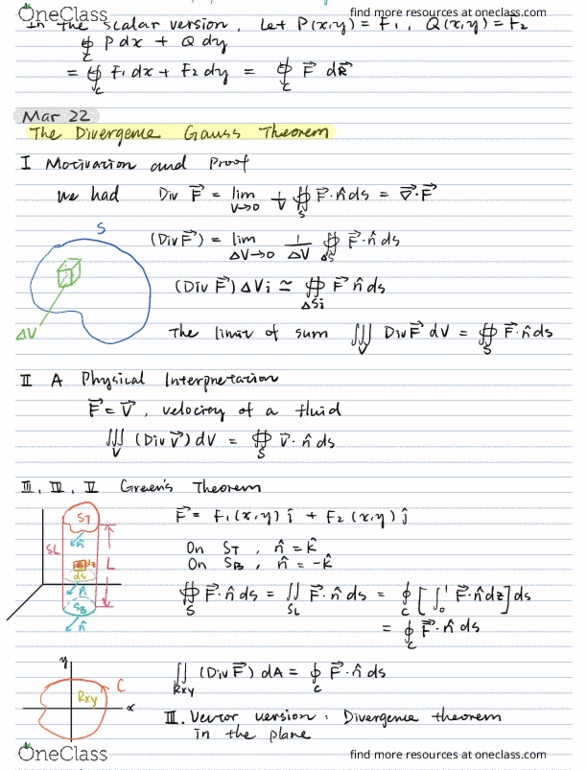 OneClass
find more resources at oneclass.com
In the scalar version, Let P(x,y) = F₁, Q(x,y) = F₂
∮_C P dx + Q dy
= ∮_C F₁ dx + F₂ dy = ∮_C F⃗ dR⃗
Mar 22
The Divergence Gauss Theorem
I Motivation and Proof
we had Div F⃗ = lim_{V→0} 1/V ∯_S F⃗·n̂ ds = ∇⃗·F⃗
S
(Div F⃗) = lim_{ΔV→0} 1/ΔV ∯_{ΔS} F⃗·n̂ ds
(Div F⃗) ΔVi ≃ ∯_{ΔSi} F⃗ n̂ ds
ΔV
The limit of sum ∭_V Div F⃗ dV = ∯_S F⃗·n̂ ds
II A Physical Interpretation
F⃗ = V⃗, velocity of a fluid
∭_V (Div V⃗) dV = ∯_S V⃗·n̂ ds
III, IV, V Green's Theorem
F⃗ = F₁(x,y) î + F₂(x,y) ĵ
ST
n̂
SL
dz
L
ds
n̂
SB
n̂
On ST, n̂ = k̂
On SB, n̂ = -k̂
∯_S F⃗·n̂ ds = ∬_{SL} F⃗·n̂ ds = ∮_C [∫₀¹ F⃗·n̂ dz] ds
= ∮_C F⃗·n̂ ds
y
C
Rxy
x
∬_{Rxy} (Div F⃗) dA = ∮_C F⃗·n̂ ds
III. Vector version: Divergence theorem
in the plane
OneClass
find more resources at oneclass.com